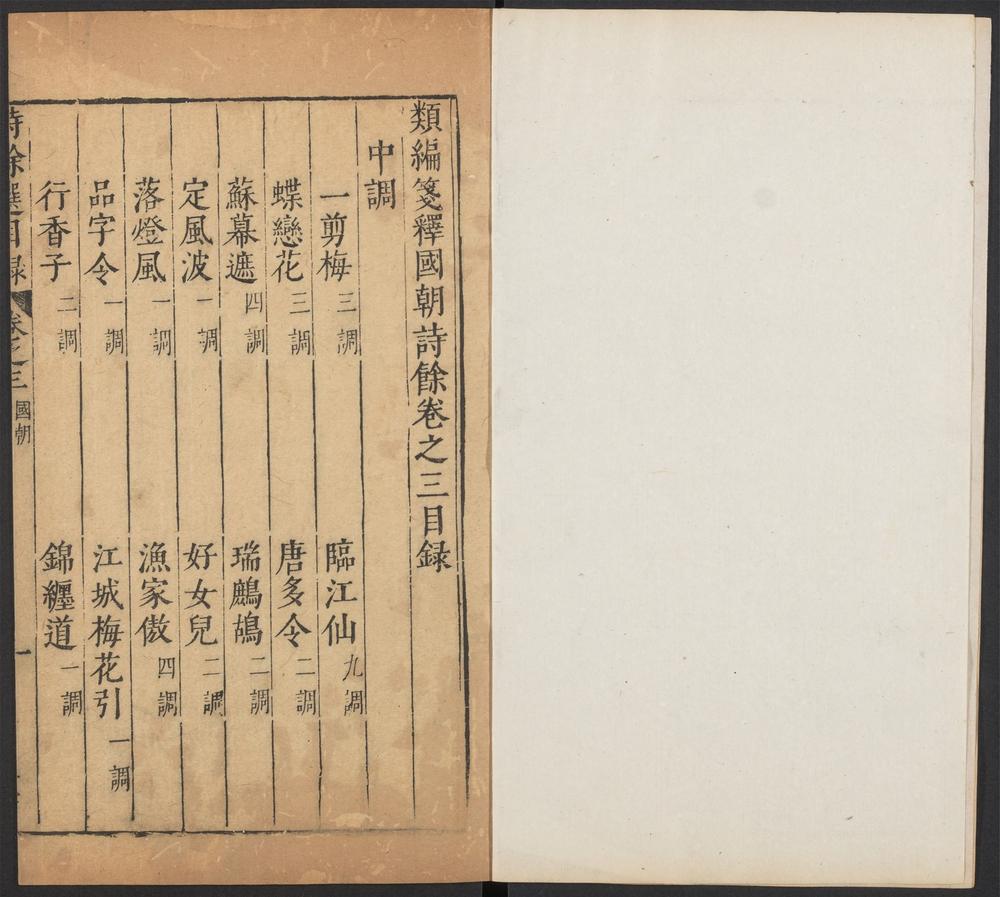 類編箋釋國朝詩餘卷之三目録
中調
一剪梅三調　臨江仙九調
蝶戀花三調　唐多令二調
蘇幕遮四調　瑞鷓鴣二調
定風波一調　好女兒二調
落燈風一調　漁家傲四調
品字令一調　江城梅花引一調
行香子二調　錦纏道一調
詩餘選目録　卷之三國朝　一